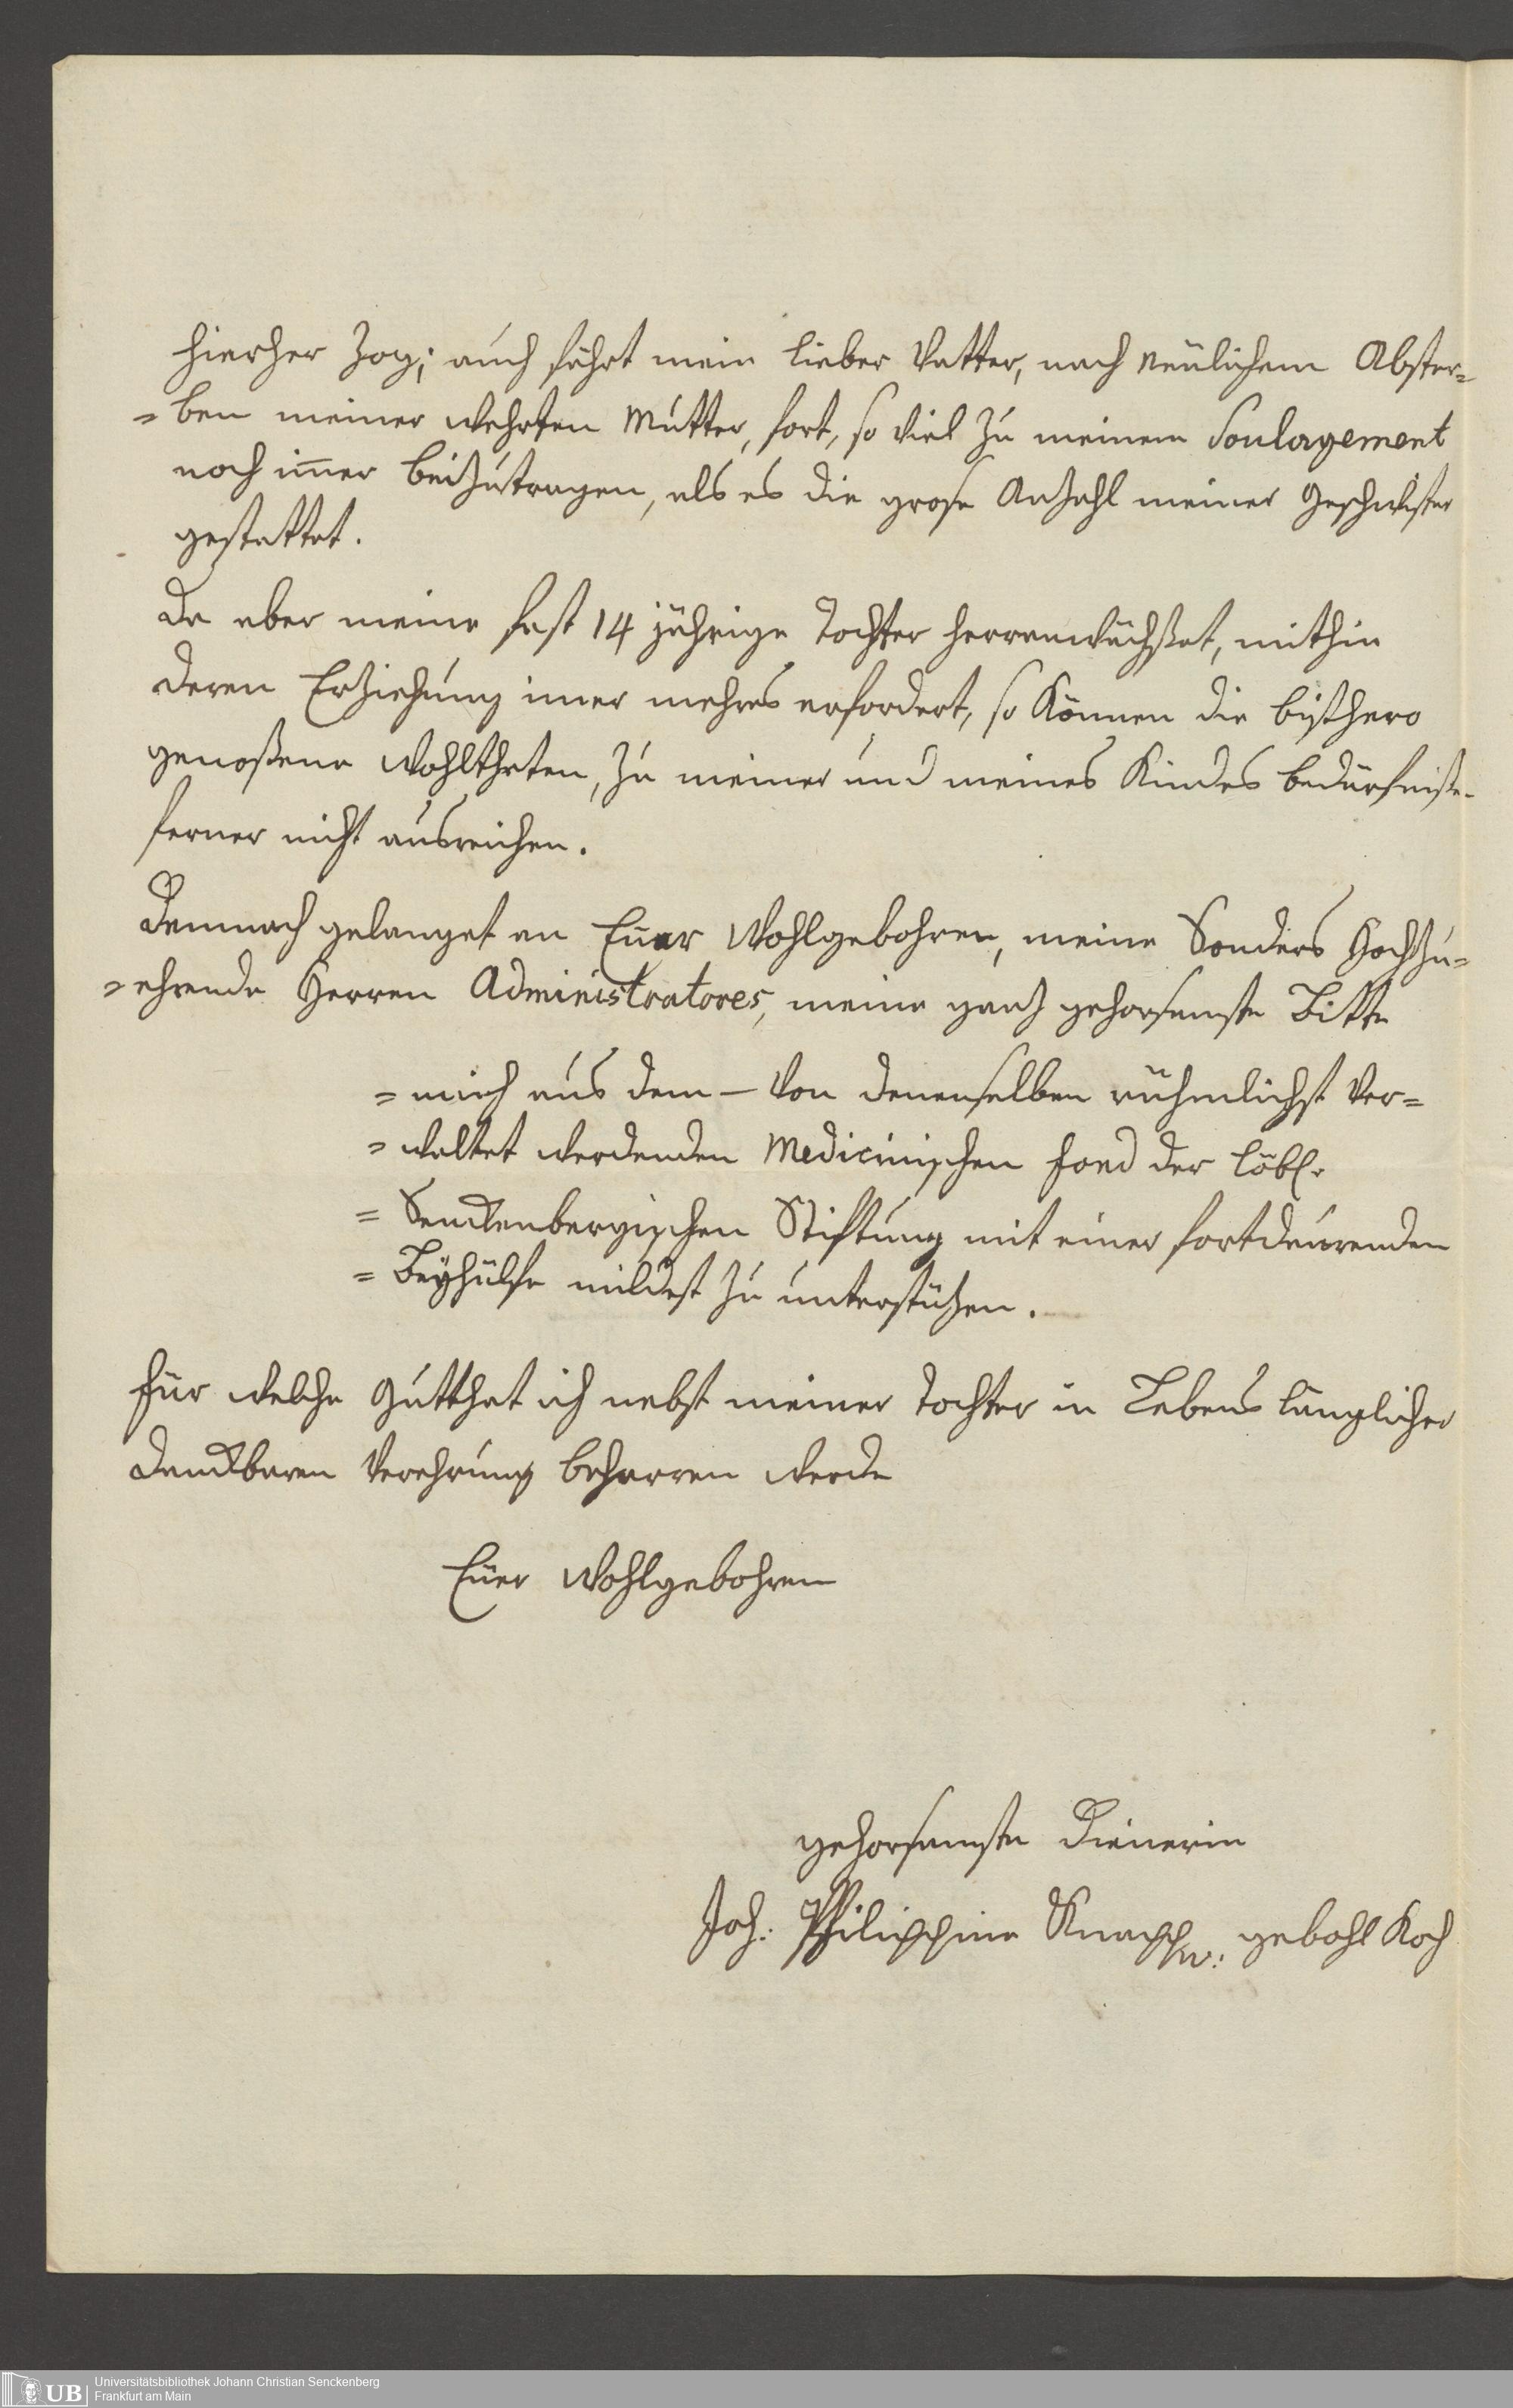 hierher zog; auch fährt mein lieber Vatter, nach neülichem Abster=
=ben meiner wehrten Mutter, fort, so viel zu meinem Soulagement
noch im̄er beizutragen, als es die grose Anzahl meiner Geschwister
gestattet.
Da aber meine fast 14 jährige Tochter herranwächßet, mithin
deren Erziehung im̄er mehres erfordert, so können die bißhero
genoßene Wohlthaten, zu meiner und meines Kindes bedürfniße
ferner nicht ausreichen.
Demnach gelanget an Euer Wohlgebohren, meine Sonders Hochzu=
=ehrende Herren Administratores, meine ganz gehorsamste Bitte
= mich aus dem – von denenselben rühmlichst ver=
= waltet werdenden Medicinischen fond der löbl.
= Senckenbergischen Stiftung mit einer fortdaurenden
= Beyhülfe mildest zu unterstüzen.
für welche Gutthat ich nebst meiner Tochter in Lebens länglicher
danckbaren Verehrung beharren werde
Euer Wohlgebohren
gehorsamste Dienerin
Joh: Philippine Knapp w: gebohl Koch
UB Universitätsbibliothek Johann Christian Senckenberg
Frankfurt am Main